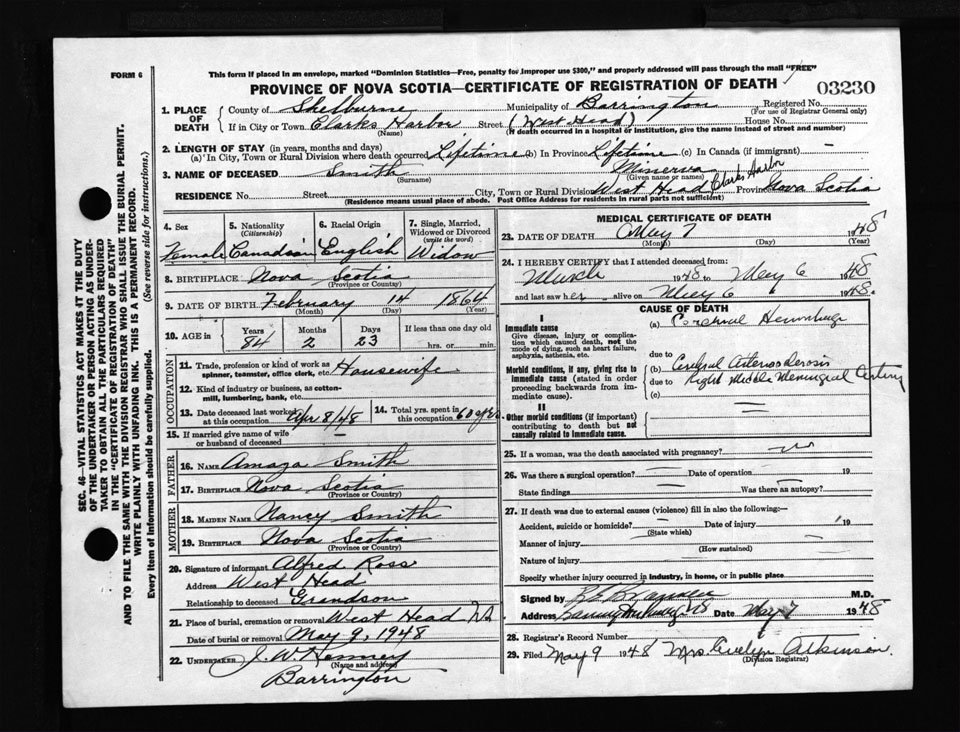 FORM 6
This form if placed in an envelope, marked "Dominion Statistics—Free, penalty for improper use $300," and properly addressed will pass through the mail "FREE"
PROVINCE OF NOVA SCOTIA—CERTIFICATE OF REGISTRATION OF DEATH
03230
1. PLACE OF DEATH County of Shelburne Municipality of Barrington Registered No.
(For use of Registrar General only)
If in City or Town Clarks Harbor Street (West Head) House No.
(Name) (If death occurred in a hospital or institution, give the name instead of street and number)
2. LENGTH OF STAY (in years, months and days)
(a) In City, Town or Rural Division where death occurred Lifetime (b) In Province Lifetime (c) In Canada (if immigrant) —
3. NAME OF DECEASED Smith Minerva
(Surname) (Given name or names)
RESIDENCE No. Street City, Town or Rural Division West Head Clarks Harbor Province Nova Scotia
(Residence means usual place of abode. Post Office Address for residents in rural parts not sufficient)
4. Sex 5. Nationality (Citizenship) 6. Racial Origin 7. Single, Married, Widowed or Divorced (write the word)
Female Canadian English Widow
8. BIRTHPLACE Nova Scotia
(Province or Country)
9. DATE OF BIRTH February 14 1864
(Month) (Day) (Year)
10. AGE in Years Months Days If less than one day old
84 2 23 hrs. or min.
OCCUPATION
11. Trade, profession or kind of work as spinner, teamster, office clerk, etc. Housewife
12. Kind of industry or business, as cotton-mill, lumbering, bank, etc.
13. Date deceased last worked at this occupation Apr 8/48 14. Total yrs. spent in this occupation 60 yrs.
15. If married give name of wife or husband of deceased —
FATHER
16. NAME Amaza Smith
17. BIRTHPLACE Nova Scotia
(Province or Country)
MOTHER
18. MAIDEN NAME Nancy Smith
19. BIRTHPLACE Nova Scotia
(Province or Country)
20. Signature of informant Alfred Ross
Address West Head
Relationship to deceased Grandson
21. Place of burial, cremation or removal West Head NS
Date of burial or removal May 9, 1948
22. UNDERTAKER J. W. Kenney
(Name and address)
Barrington
MEDICAL CERTIFICATE OF DEATH
23. DATE OF DEATH May 7 1948
(Month) (Day) (Year)
24. I HEREBY CERTIFY that I attended deceased from:
March 1948 to May 6 1948
and last saw her alive on May 6 1948.
CAUSE OF DEATH
I
Immediate cause
Give disease, injury or complication which caused death, not the mode of dying, such as heart failure, asphyxia, asthenia, etc.
(a) Cerebral Hemorrhage
due to
Morbid conditions, if any, giving rise to immediate cause (stated in order proceeding backwards from immediate cause).
(b) Cerebral Arteriosclerosis
due to Right Middle Meningeal Artery
(c)
II
Other morbid conditions (if important) contributing to death but not causally related to immediate cause.
25. If a woman, was the death associated with pregnancy? no
26. Was there a surgical operation? — Date of operation 19
State findings — Was there an autopsy? —
27. If death was due to external causes (violence) fill in also the following:—
Accident, suicide or homicide? — Date of injury 19
(State which)
Manner of injury
(How sustained)
Nature of injury
Specify whether injury occurred in industry, in home, or in public place
Signed by M.D.
Address NS Date May 7 1948
28. Registrar's Record Number
29. Filed May 9 1948 Mrs. Evelyn Atkinson.
(Division Registrar)
SEC. 46—VITAL STATISTICS ACT MAKES IT THE DUTY
OF THE UNDERTAKER OR PERSON ACTING AS UNDER-
TAKER TO OBTAIN ALL THE PARTICULARS REQUIRED
IN THE "CERTIFICATE OF REGISTRATION OF DEATH"
AND TO FILE THE SAME WITH THE DIVISION REGISTRAR WHO SHALL ISSUE THE BURIAL PERMIT.
WRITE PLAINLY WITH UNFADING INK. THIS IS A PERMANENT RECORD.
Every item of Information should be carefully supplied. (See reverse side for instructions.)